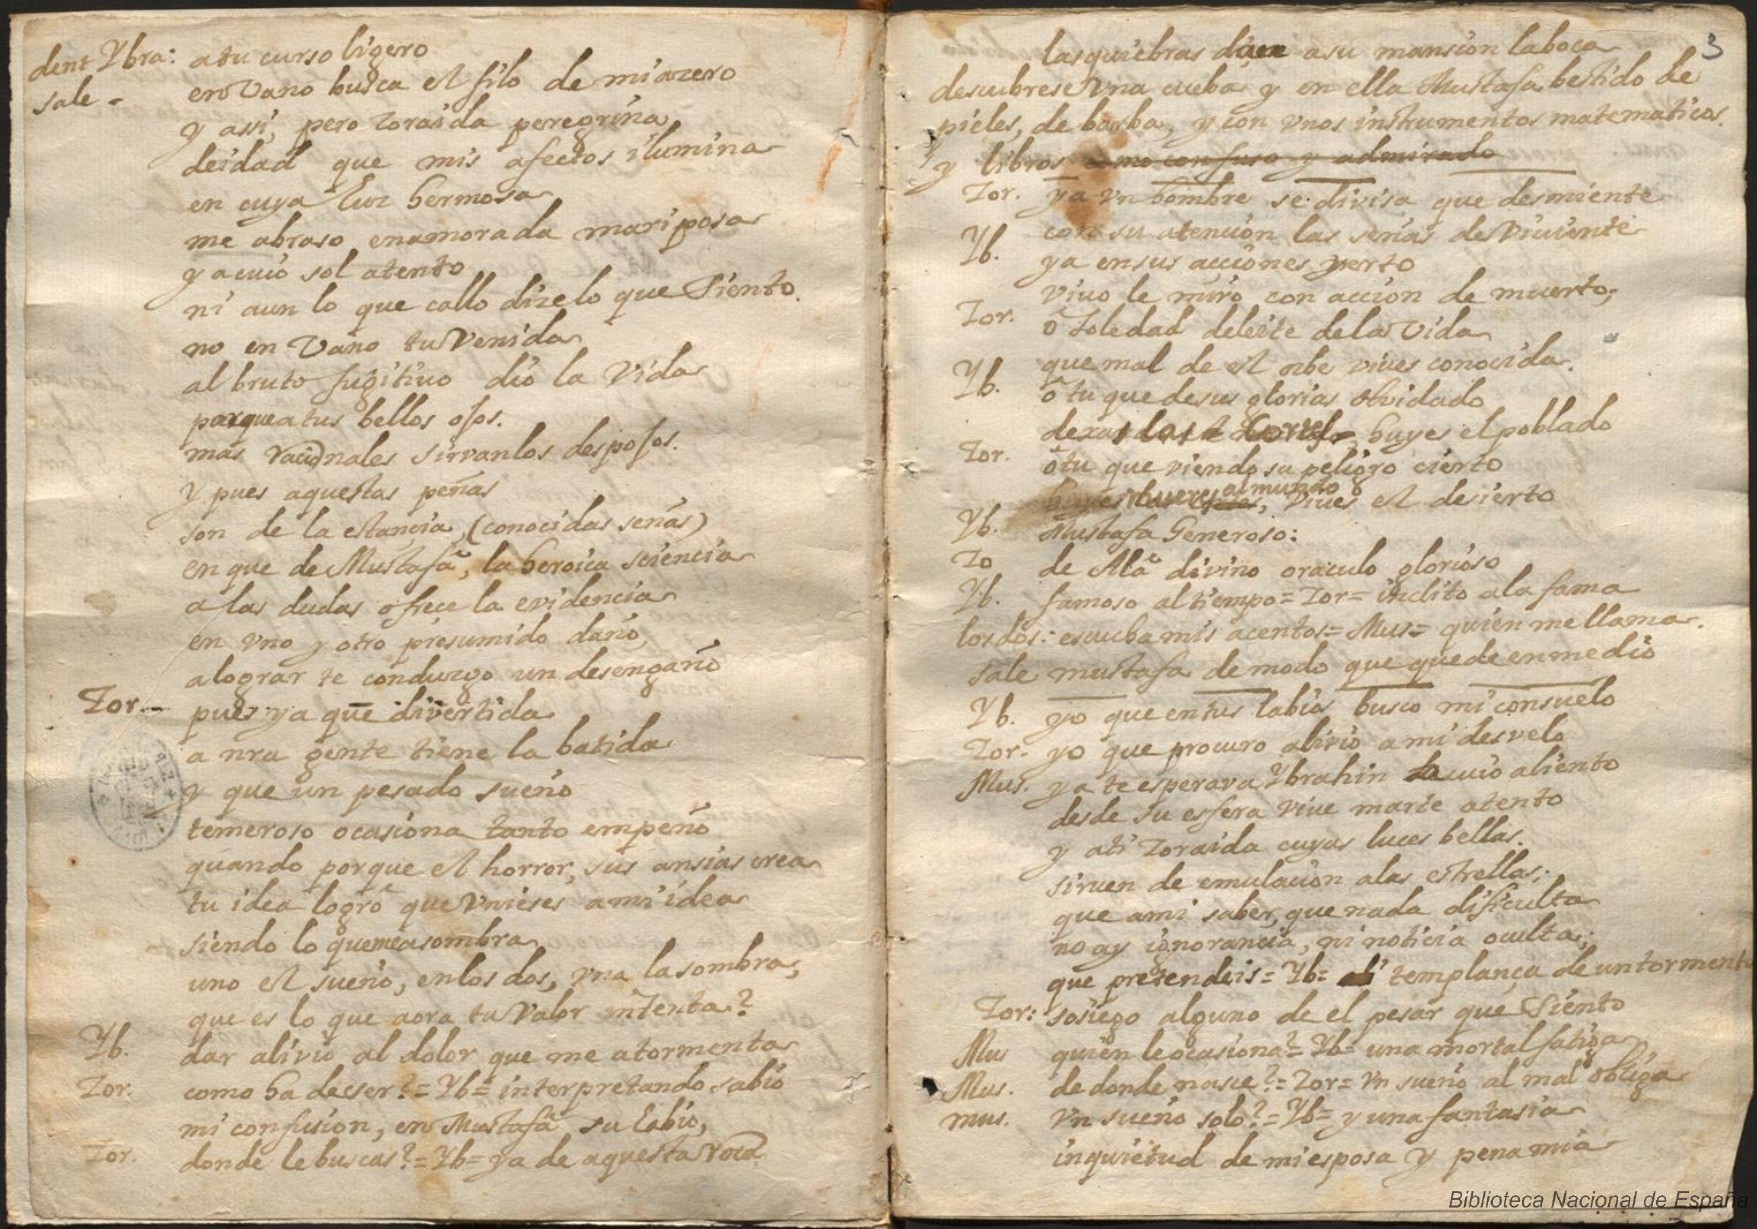 dent Ybra: a tu curso ligero
sale - en Vano busca el filo de mi azero
y assi, pero Zoraida peregrina
deidad que mis afectos ilumina
en cuya Luz hermosa
me abraso enamorada mariposa
y a cuio sol atento
ni aun lo que callo dizelo que Siento.
no en Vano tu Venida
al bruto fugitivo dio la Vida
porque a tus bellos ojos.
mas racionales sirvanlos despojos.
Y pues aquestas peñas
son de la estancia, (conocidas señas)
en que de Mustafâ, la heroica sciencia
a las dudas ofrece la evidencia
en vno y otro presumido daño,
a lograr te conduzgo un desengaño
Zor.- pues ya que divertida
a nra gente tiene la batida
y que un pesado sueño
temeroso ocasiona tanto empeño
quando porque el horror, sus ansias crea
tu idea logrô que Vnieses a mi idea
siendo lo que me asombra
uno el sueño, en los dos, vna la sombra,
que es lo que aora tu Valor intenta?
Yb. dar alivio al dolor que me atormenta
Zor. como ha de ser?=Yb= interpretando sabio
mi confusion, en Mustafâ su Labio,
Zor. donde le buscas?=Yb= ya de aquesta roca
3
las quiebras dan a su mansion la boca
descubrese Vna cueba y en ella Mustafa bestido de
pieles, de barba, y con vnos instrumentos matematicos
y libros como confuso y admirado
Zor. ya vn hombre se divisa que desmiente
con su atencion las señas de Viviente
Yb. ya en sus acciones yerto
vivo le miro con accion de muerto,
Zor. ô Soledad deleite de la Vida
que mal de el orbe vives conocida.
Yb. ô tu que de sus glorias olvidado
dexas la Corte, huyes el poblado
Zor. ôtu que viendo su peligro cierto
mueres al mundo, vives el desierto
Yb. Mustafa Generoso:
Zo de Alâ divino oraculo glorioso
Yb. famoso al tiempo= Zor= inclito a la fama
los dos: escucha mis acentos= Mus= quien me llama.
sale mustafa de modo que quede en medio
Yb. yo que en tus labios busco mi consuelo
Zor. yo que procuro alivio a mi desvelo
Mus. ya te esperava Ybrahin a cuio aliento
desde su esfera vive marte atento
y a ti Zoraida cuyas luces bellas.
sirven de emulacion a las estrellas;
que a mi saber, que nada dificulta
no ay ignorancia, ni noticia oculta;
que pretendeis= Yb= templança de un tormento
Zor: sosiego alguno de el pesar que Siento
Mus quien le ocasiona?= Yb= una mortal fatiga
Mus. de donde nasce?= Zor= vn sueño al mal obliga
mus. vn sueño solo?= Yb= y una fantasia
inquietud de mi esposa y pena mia
Biblioteca Nacional de España